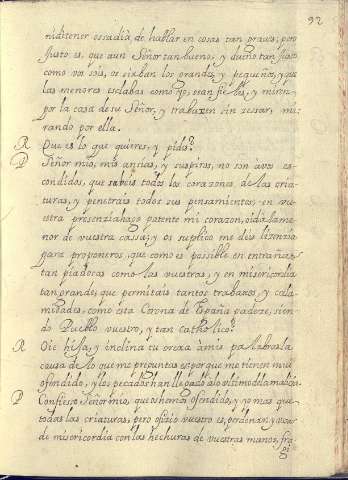 92
ni de tener ossadia de hablar en cosas tan graues; pero
justo es, que aun Señor tan bueno, y dueño tan justo
como vos sois, os siruan los grandes, y pequeños, y que
las menores esclabas como yo, sean fieles, y miren
por la casa de su Señor, y trabaxen sin zessar, mi-
rando por ella.
R Que es lo que quieres, y pides?
P Señor mio, mis ansias, y suspiros, no son a vos es-
condidos, que sabeis todos los corazones, de las cria-
turas, y penetrais todos sus pensamientos; en vu-
estra presenzia hago patente mi corazon, oid a la me-
nor de vuestra cassa; y os suplico me deis lizenzia
para proponeros, que como es possible en entrañas
tan piadosas como las vuestras, y en misericordia
tan grande, que permitais tantos trabaxos, y cala-
midades, como esta Corona de España padeze, sien-
do Pueblo vuestro, y tan catholico?
R Oie hija, y inclina tu orexa à mis palabras la
causa de lo que me preguntas es porque me tienen mui
ofendido, y los pecados han llegado a lo ultimo de la maldad.
P Confiesso Señor mio, que os hemos ofendido, y yo mas que
todas las criaturas; pero ofizio vuestro es, perdonar, y usar
de misericordia con las hechuras de vuestras manos, fra-
gi